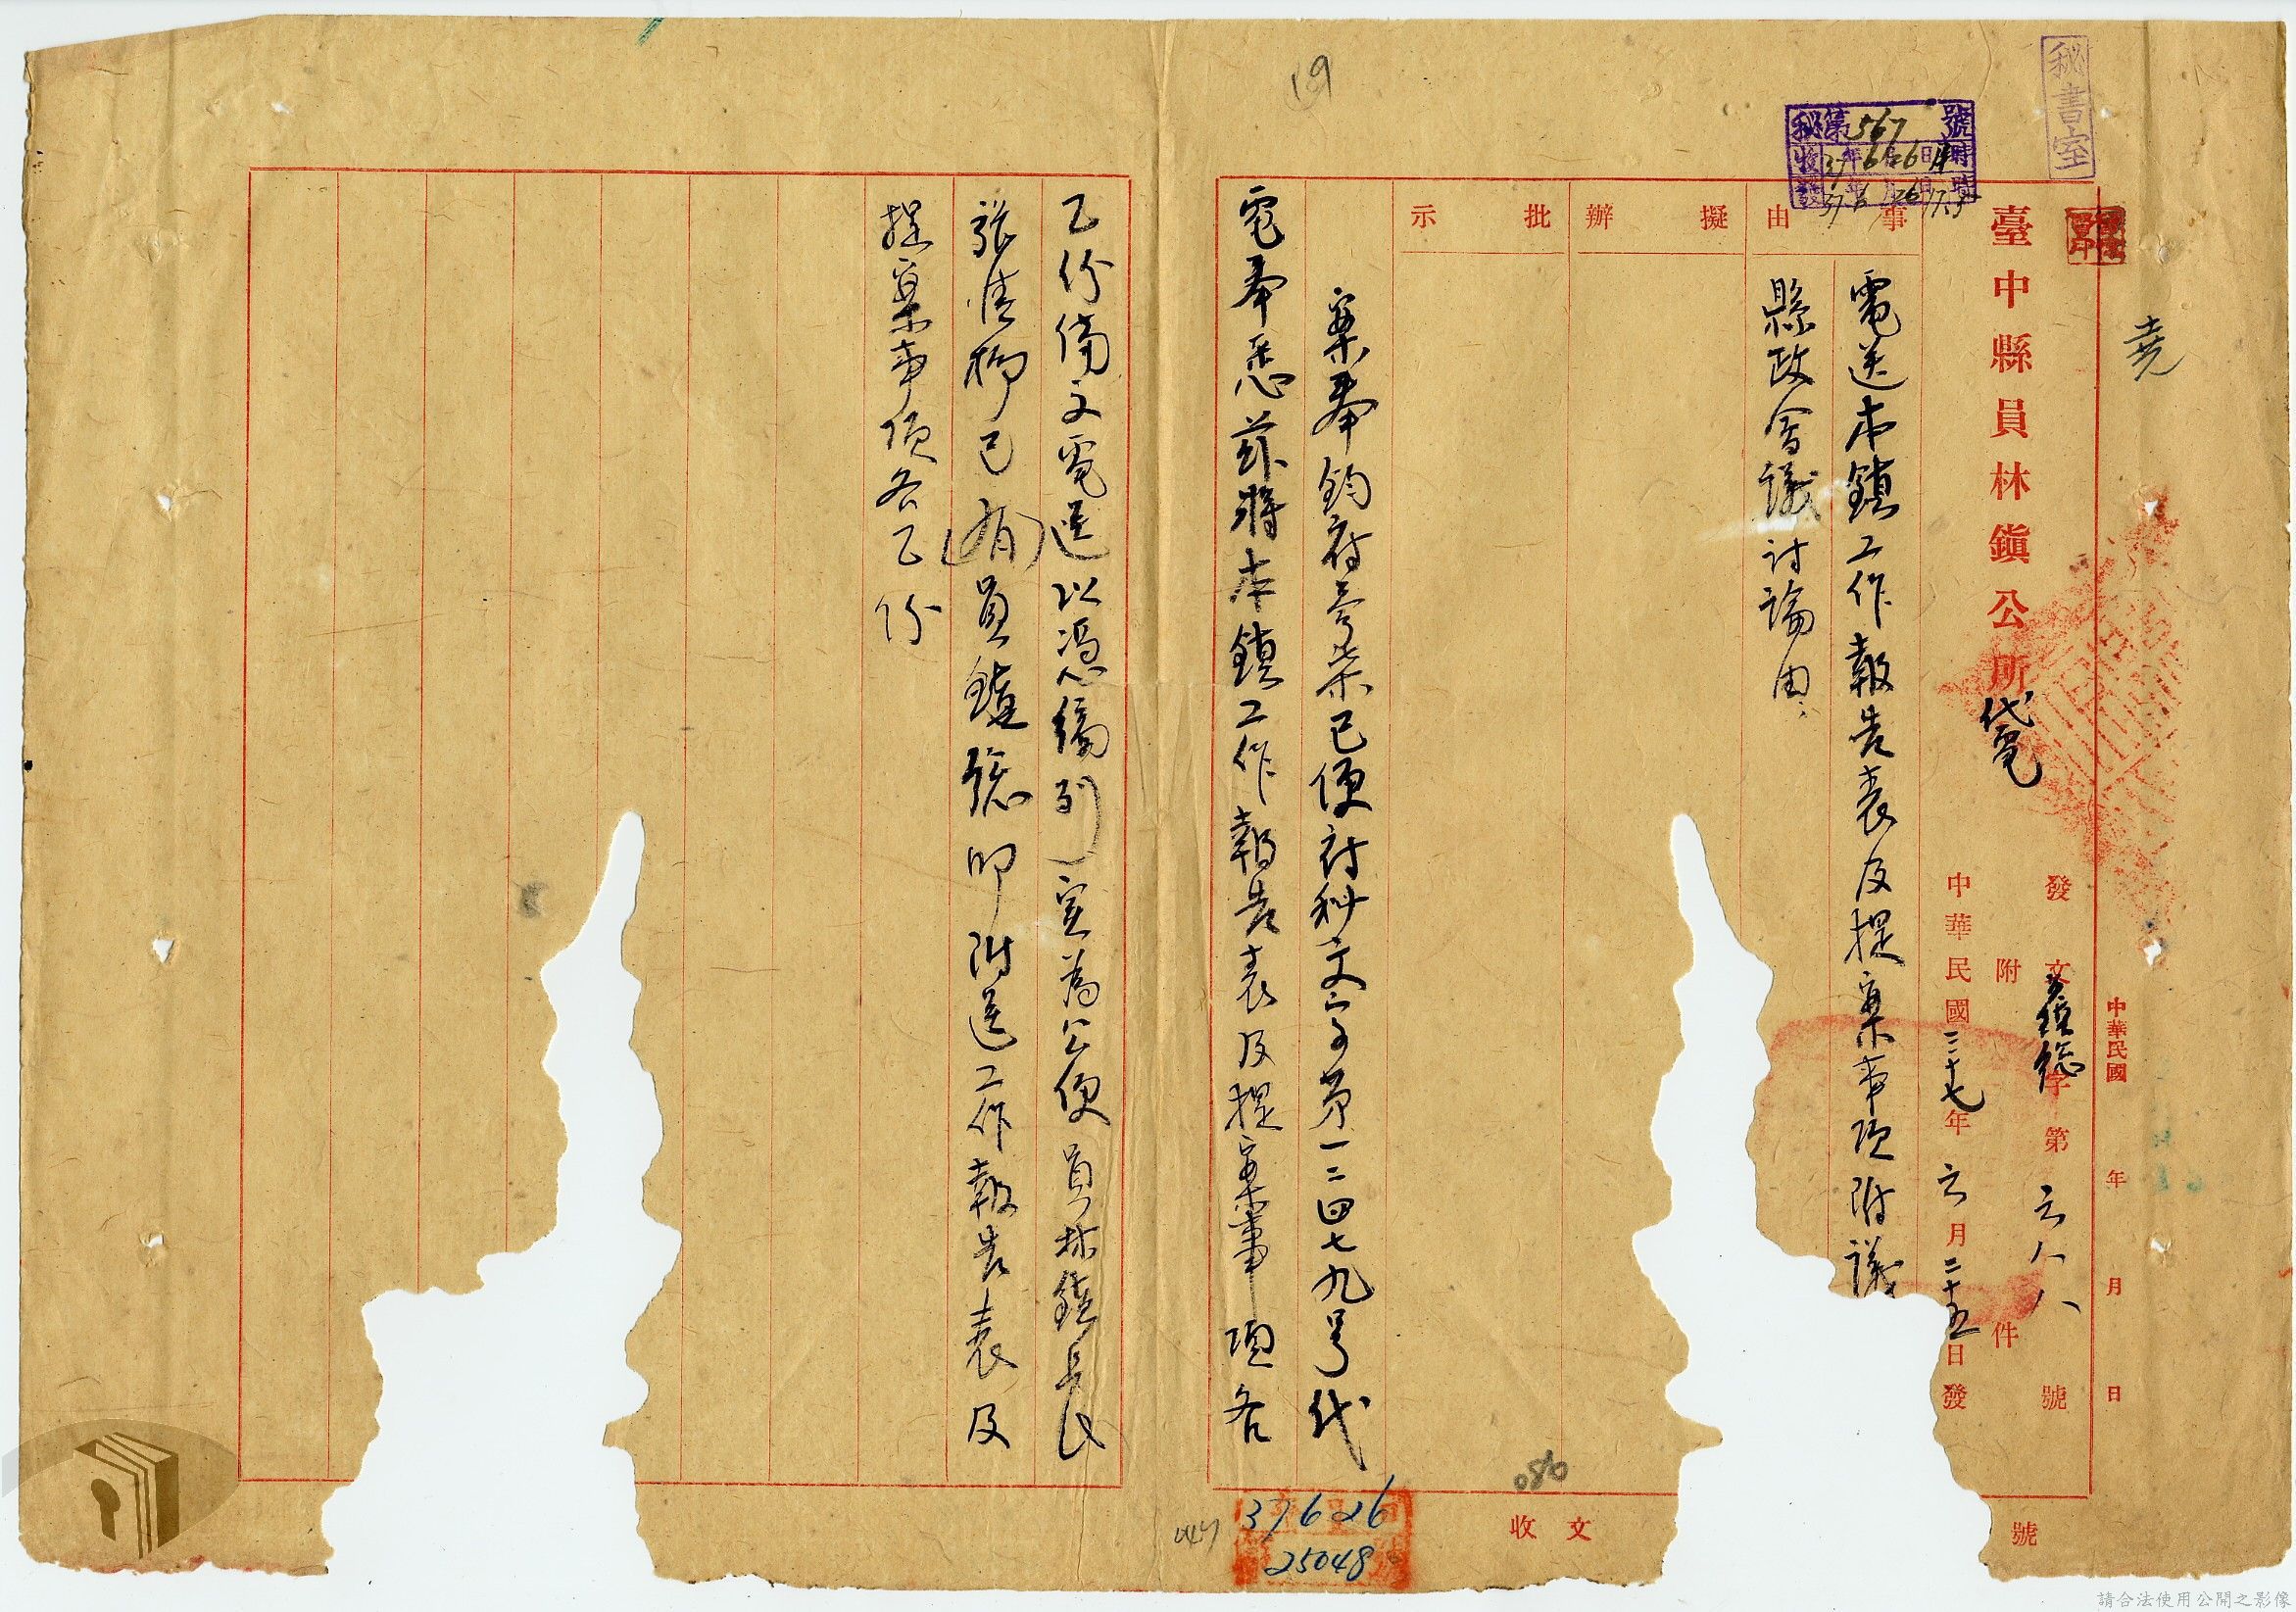 秘書室
秘第567號
收37年6月26日
發37年6月26日17時
堯
中華民國 年 月 日
臺中縣員林鎮公所代電
發文員鎮總字第六八八號
附件
中華民國三十七年六月二十五日發
事由
電送本鎮工作報告表及提案事項附議
縣政會議討論由
擬辦
批示
案奉鈞府參柒巳便府秘文字第一二四七九号代
電奉悉茲將本鎮工作報告表及提案事項各
乙份備文電送以憑編列實為公便員林鎮長
張清柳巳(有)員鎮總叩附送工作報告表及
提案事項各乙份
收文
號
37626
25048
080
19
請合法使用公開之影像